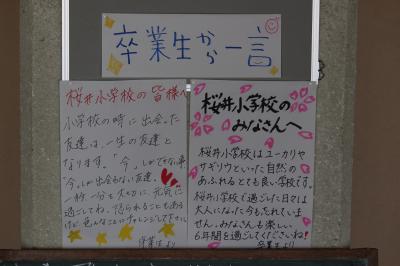 卒業生から一言
桜井小学校の皆様へ
小学校の時に出会った
友達は、一生の友達と
なります。「今」しかできない事
「今」しか出会えない友達。
一秒一分を大切に、元気に
過ごしてね。怒られることもある
けど色んなことにチャレンジして下さい
卒業生より
桜井小学校の
みなさんへ
桜井小学校はユーカリや
サギソウといった自然の
あふれるとても良い学校です。
桜井小学校で過ごした日々は
大人になった今も忘れていま
せん。みなさんも楽しい
6年間を過ごしてくださいね!
卒業生より